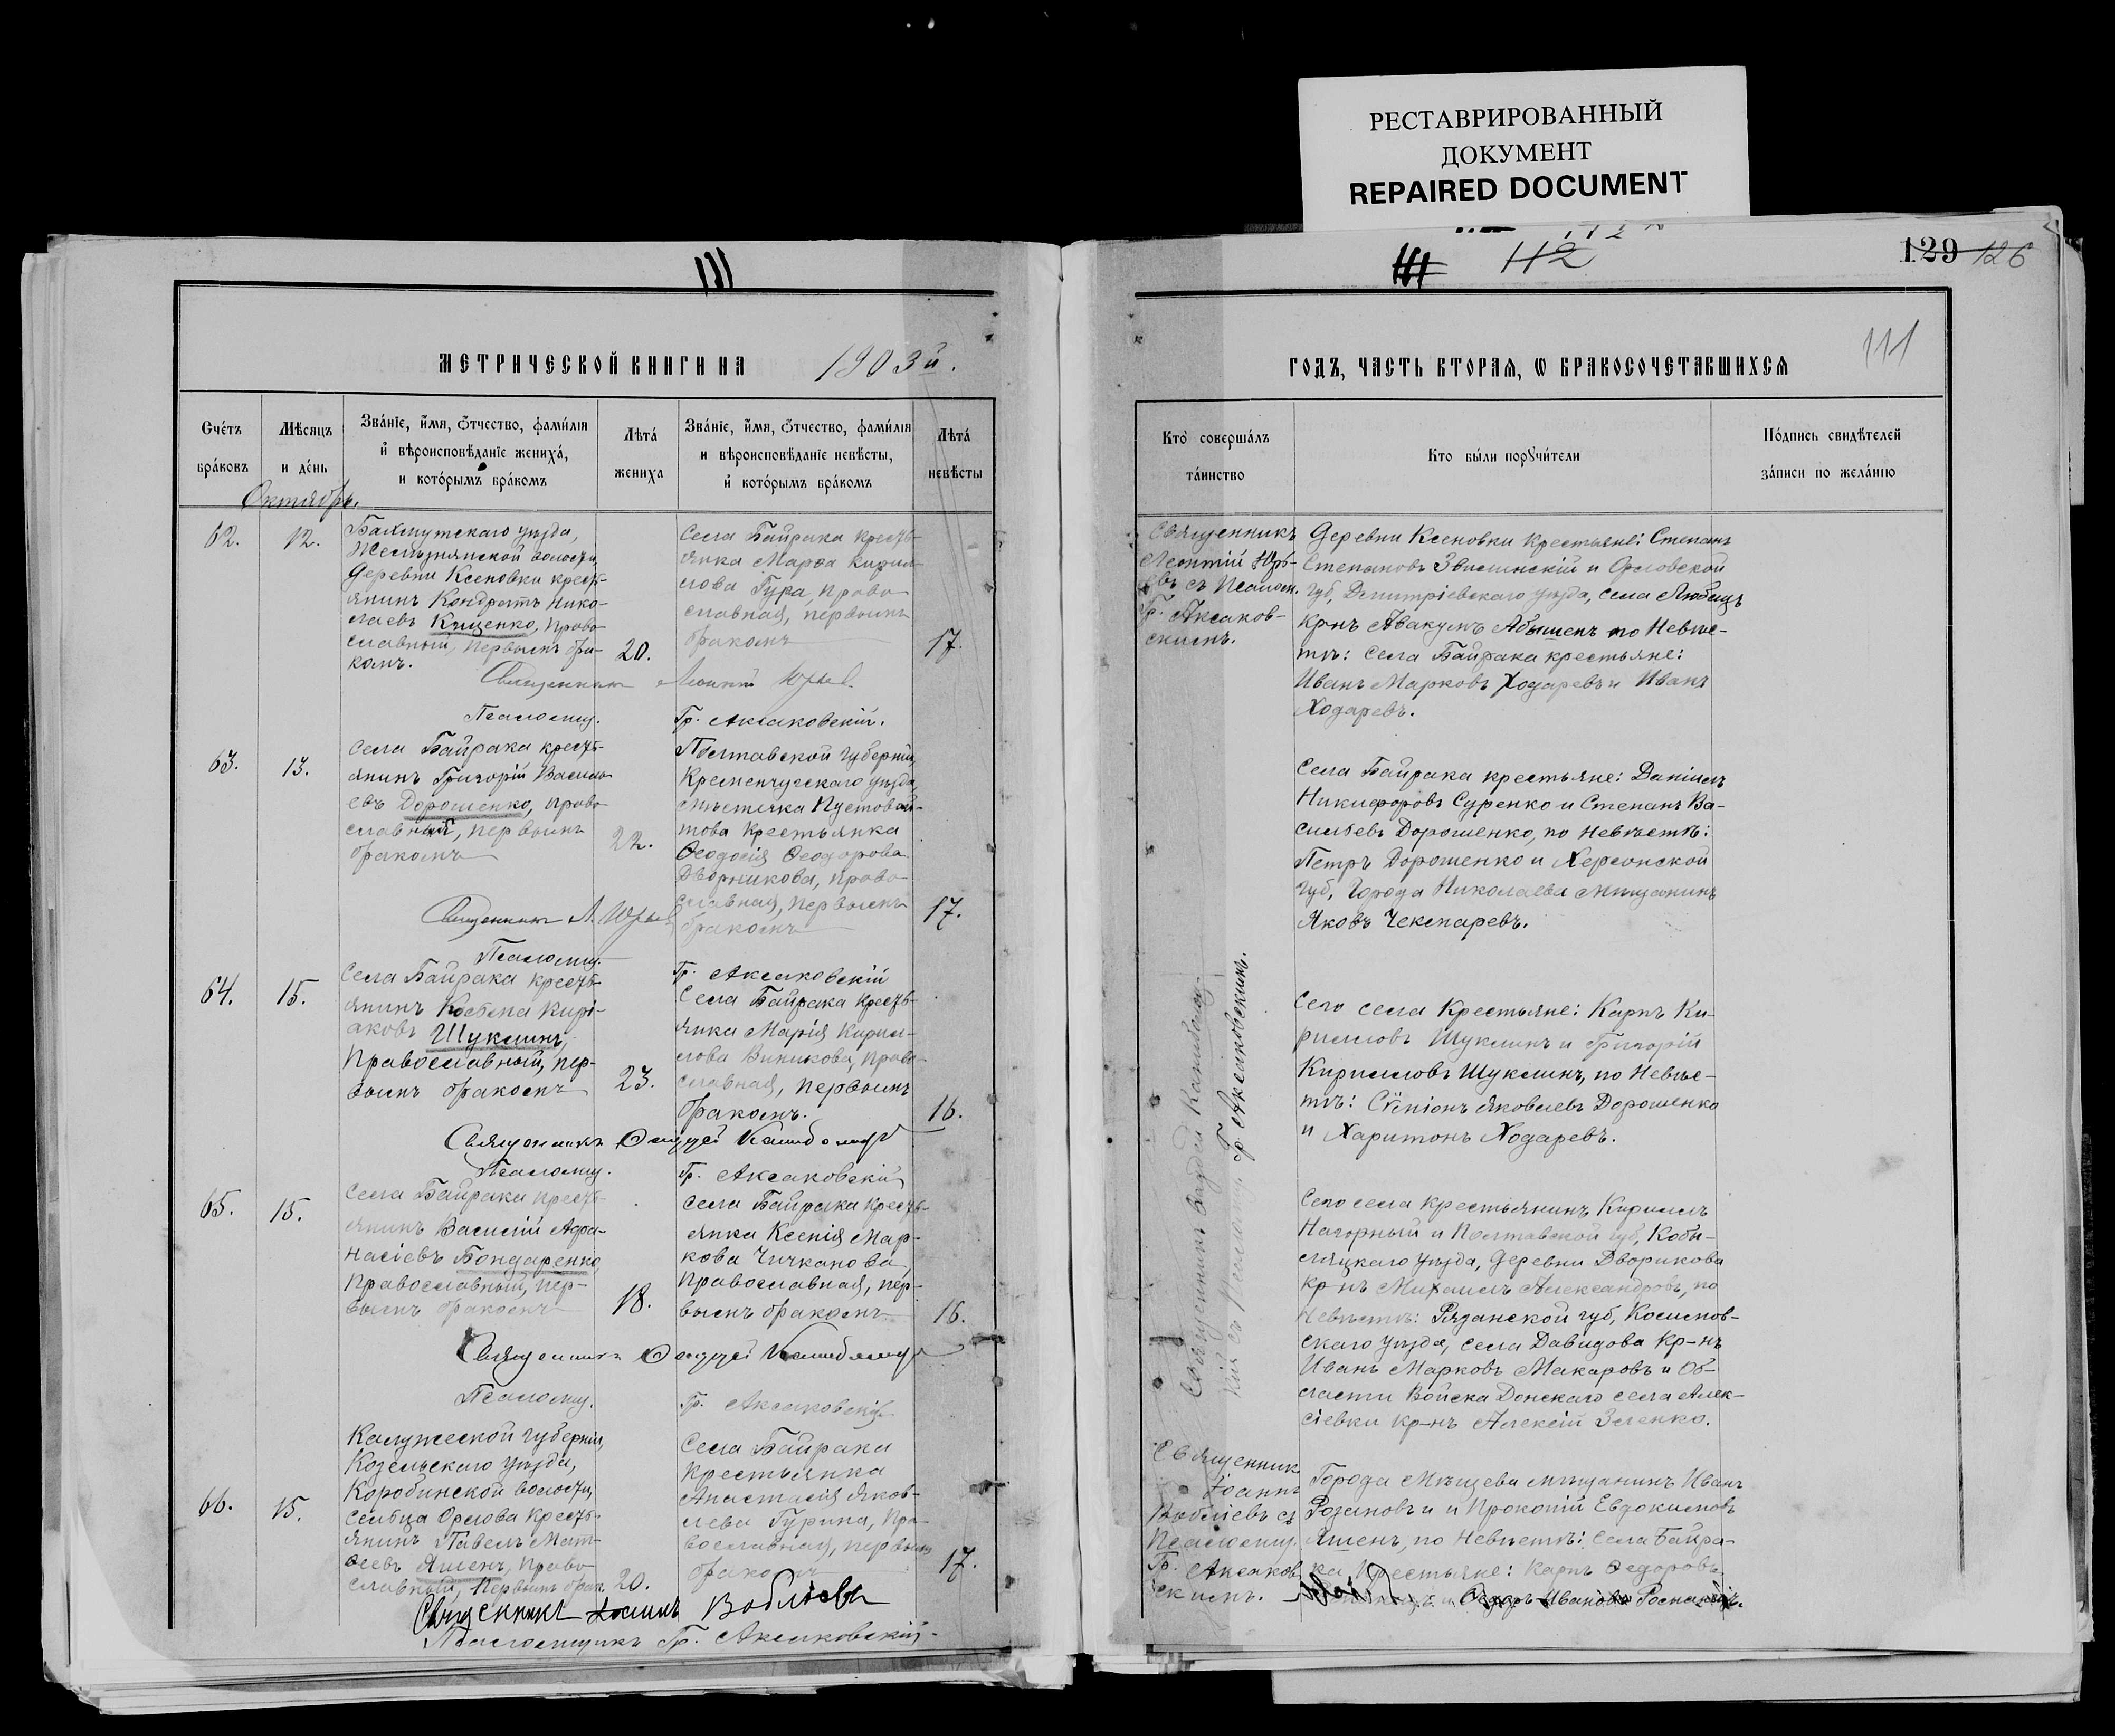 РЕСТАВРИРОВАННЫЙ
ДОКУМЕНТ
REPAIRED DOCUMENT
111
112
129 126
111
МЕТРИЧЕСКОЙ КНИГИ НА 1903й.
Счетъ браковъ
Мѣсяцъ и день
Званіе, имя, отчество, фамилія
и вѣроисповѣданіе жениха,
и которымъ бракомъ
Лѣта жениха
Званіе, имя, отчество, фамилія
и вѣроисповѣданіе невѣсты,
и которымъ бракомъ
Лѣта невѣсты
Октябрь.
62.
12.
Бахмутскаго уѣзда,
Желѣзнянской волости,
деревни Ксеновки кресть-
янинъ Кондратъ Нико-
лаевъ Кищенко, право-
славный, первымъ бра-
комъ.
20.
Села Байрака кресть-
янка Марѳа Кирил-
лова Гура, право-
славная, первымъ
бракомъ
17.
Священникъ Леонтій Юрьев
Псаломщ. Гр. Аксаковскій.
63.
13.
Села Байрака кресть-
янинъ Григорій Василь-
евъ Дорошенко, право-
славный, первымъ
бракомъ
22.
Полтавской губерніи,
Кременчугскаго уѣзда,
мѣстечка Пустовой-
това крестьянка
Ѳеодосія Ѳеодорова
Дворникова, право-
славная, первымъ
бракомъ
17.
Священникъ Л. Юрьев
Псаломщ. Гр. Аксаковскій
64.
15.
Села Байрака кресть-
янинъ Косьма Кирі-
аковъ Шуклинъ,
православный, пер-
вымъ бракомъ
23.
Села Байрака кресть-
янка Марія Кирил-
лова Виникова, право-
славная, первымъ
бракомъ.
16.
Священникъ
Псаломщ. Гр. Аксаковскій
65.
15.
Села Байрака кресть-
янинъ Василій Аѳа-
насіевъ Бондаренко,
православный, пер-
вымъ бракомъ
18.
Села Байрака кресть-
янка Ксенія Мар-
кова Чичканова,
православная, пер-
вымъ бракомъ
16.
Священникъ
Псаломщ. Гр. Аксаковскій
66.
15.
Калужской губерніи,
Козельскаго уѣзда,
Коробинской волости,
сельца Орлова кресть-
янинъ Павелъ Мат-
ѳеевъ Яшенъ, право-
славный, первымъ брак.
20.
Села Байрака
крестьянка
Анастасія Яков-
лева Гурина, пра-
вославная, первымъ
бракомъ
17.
Священникъ Іоаннъ Воблиевъ
Псаломщикъ Гр. Аксаковскій.
ГОДЪ, ЧАСТЬ ВТОРАЯ, Ѡ БРАКОСОЧЕТАВШИХСЯ
Кто совершалъ таинство
Кто были поручители
Подпись свидѣтелей
записи по желанію
Священникъ
Леонтій Юрь-
евъ съ Псалом.
Гр. Аксаков-
скимъ.
Деревни Ксеновки крестьяне: Степанъ
Степановъ Звилинскій и Орловской
губ, Дмитріевскаго уѣзда, села Любецъ
кр-нъ Авакумъ Абышенъ по невѣс-
тѣ: села Байрака крестьяне:
Иванъ Марковъ Ходаревъ и Иванъ
Ходаревъ.
Села Байрака крестьяне: Даніилъ
Никифоровъ Суренко и Степанъ Ва-
сильевъ Дорошенко, по невѣстѣ:
Петръ Дорошенко и Херсонской
губ, города Николаева мѣщанинъ
Яковъ Чекмаревъ.
съ Псалом. Гр. Аксаковскимъ.
Сего села крестьяне: Карпъ Ки-
рилловъ Шуклинъ и Григорій
Кирилловъ Шуклинъ, по невѣс-
тѣ: Симеонъ Яковлевъ Дорошенко
и Харитонъ Ходаревъ.
Сего села крестьянинъ Кириллъ
Нагорный и Полтавской губ, Кобы-
ляцкаго уѣзда, деревни Дворикова
кр-нъ Михаилъ Александровъ, по
невѣстѣ: Рязанской губ, Косимов-
скаго уѣзда, села Давидова кр-нъ
Иванъ Марковъ Макаровъ и Об-
ласти Войска Донскаго села Алек-
сіевки кр-нъ Алексій Зеленко.
Священникъ
Іоаннъ
Воблиевъ съ
Псаломщ.
Гр. Аксаков-
скимъ.
Города Мѣщева мѣщанинъ Иванъ
Розановъ и и Прокопій Евдокимовъ
Яшенъ, по невѣстѣ: села Байра-
ка крестьяне: Карпъ Ѳедоровъ
и Ѳедоръ Ивановъ